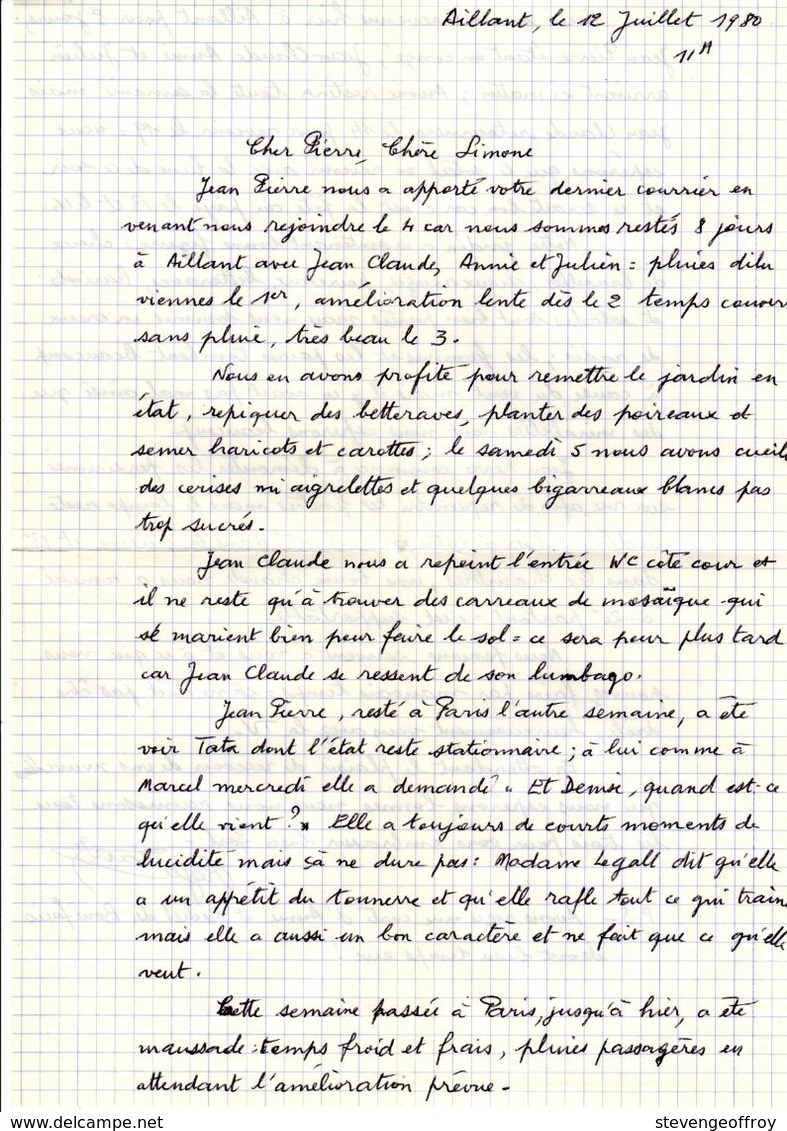 Aillant, le 12 Juillet 1980
11H
Cher Pierre, Chère Simone
Jean Pierre nous a apporté votre dernier courrier en
venant nous rejoindre le 4 car nous sommes restés 8 jours
à Aillant avec Jean Claude, Annie et Julien = pluies dilu
viennes le 1er, amélioration lente dès le 2 temps couver
sans pluie, très beau le 3.
Nous en avons profité pour remettre le jardin en
état, repiquer des betteraves, planter des poireaux et
semer haricots et carottes ; le samedi 5 nous avons cueill
des cerises mi aigrelettes et quelques bigarreaux blancs pas
trop sucrés.
Jean Claude nous a repeint l'entrée WC côté cour et
il ne reste qu'à trouver des carreaux de mosaïque qui
se marient bien pour faire le sol = ce sera pour plus tard
car Jean Claude se ressent de son lumbago.
Jean Pierre, resté à Paris l'autre semaine, a été
voir Tata dont l'état reste stationnaire ; à lui comme à
Marcel mercredi elle a demandé " Et Denise, quand est-ce
qu'elle vient ? " Elle a toujours de courts moments de
lucidité mais sà ne dure pas : Madame Legall dit qu'elle
a un appétit du tonnerre et qu'elle rafle tout ce qui traine
mais elle a aussi un bon caractère et ne fait que ce qu'elle
veut.
Cette semaine passée à Paris, jusqu'à hier, a été
maussade : temps froid et frais, pluies passagères en
attendant l'amélioration prévue.
www.delcampe.net
stevengeoffroy